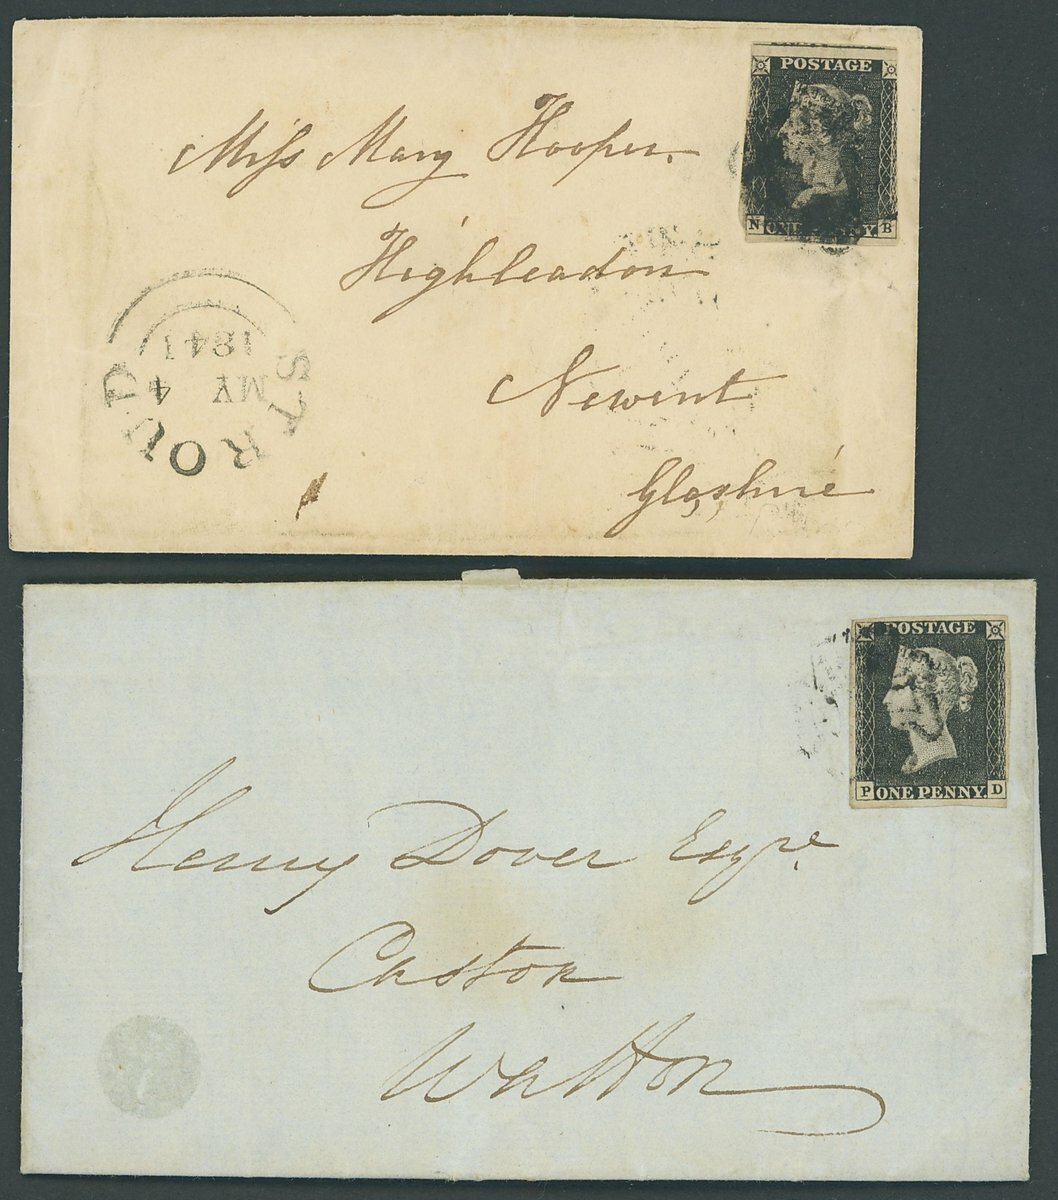 POSTAGE
Miss Mary Hooper.
N ONE PENNY B
Highleadon
STROUD
MY 4
1841
Newent
Glosshire
POSTAGE
P ONE PENNY. D
Henry Dover Esqre
Caston
Watton